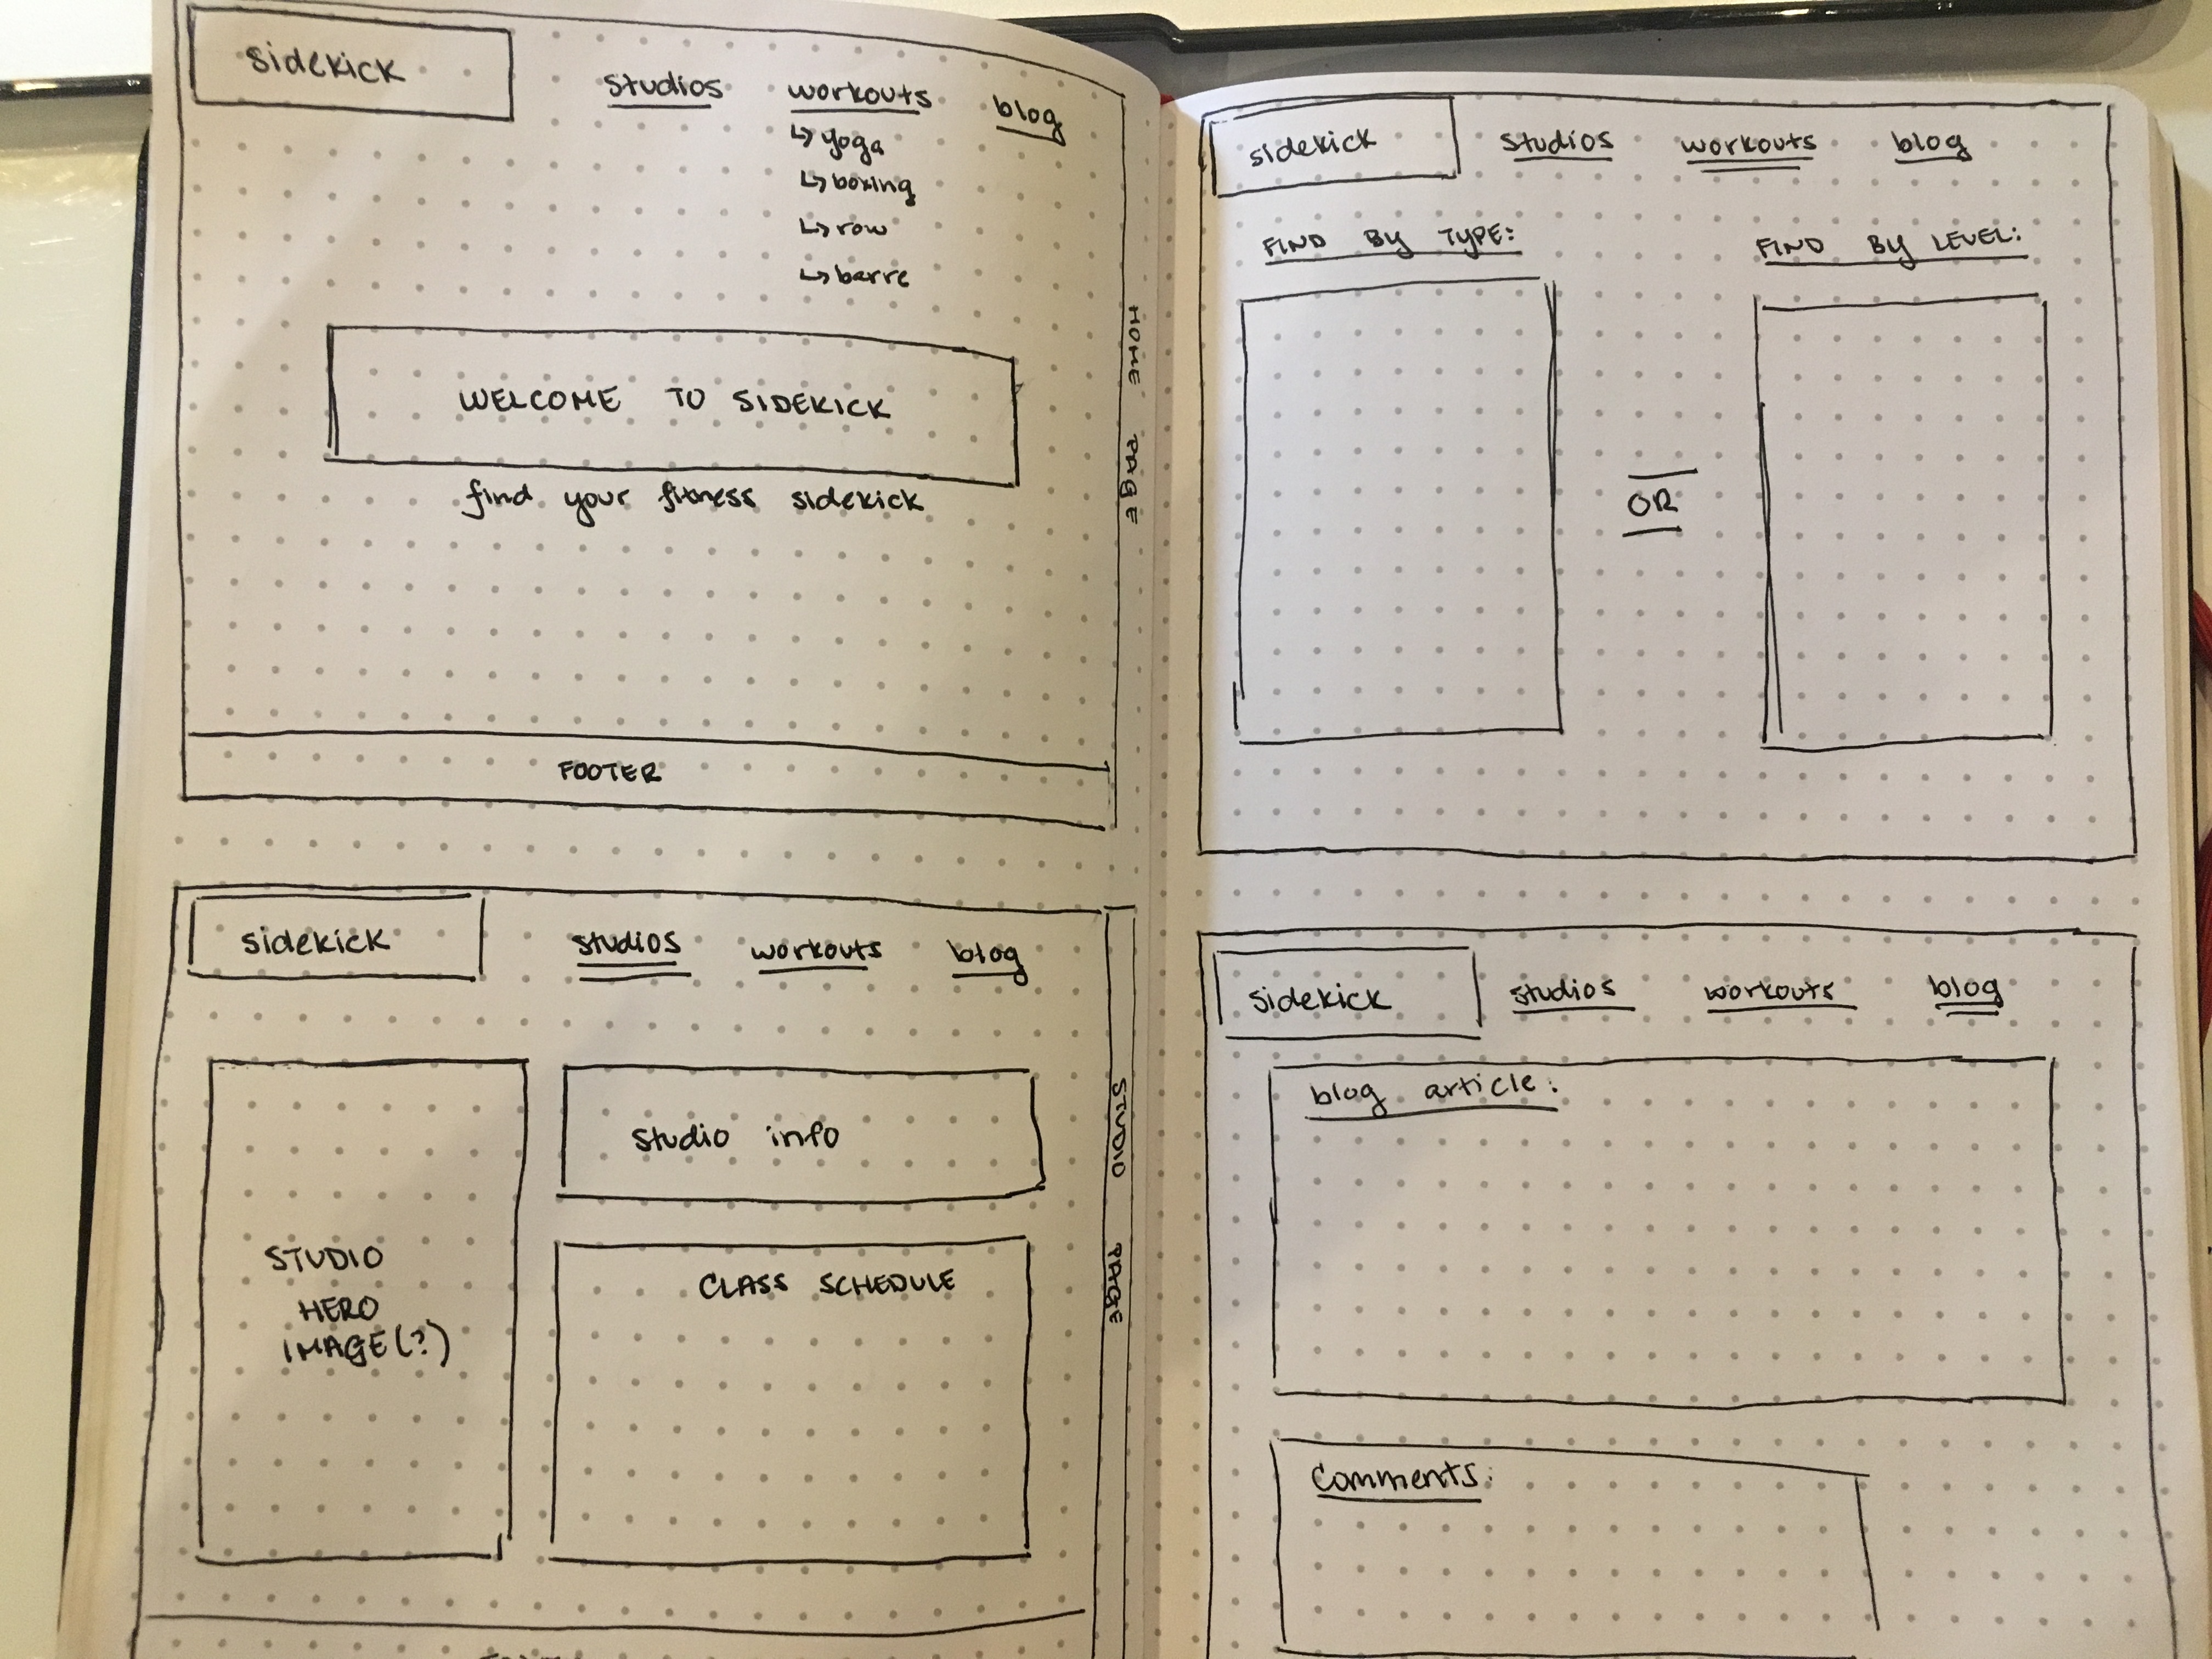 sidekick
studios workouts blog
↳ yoga
↳ boxing
↳ row
↳ barre
WELCOME TO SIDEKICK
find your fitness sidekick
FOOTER
HOME PAGE
sidekick
studios workouts blog
STUDIO
HERO
IMAGE(?)
studio info
CLASS SCHEDULE
STUDIO PAGE
sidekick
studios workouts blog
FIND BY TYPE:
FIND BY LEVEL:
OR
sidekick
studios workouts blog
blog article:
Comments: